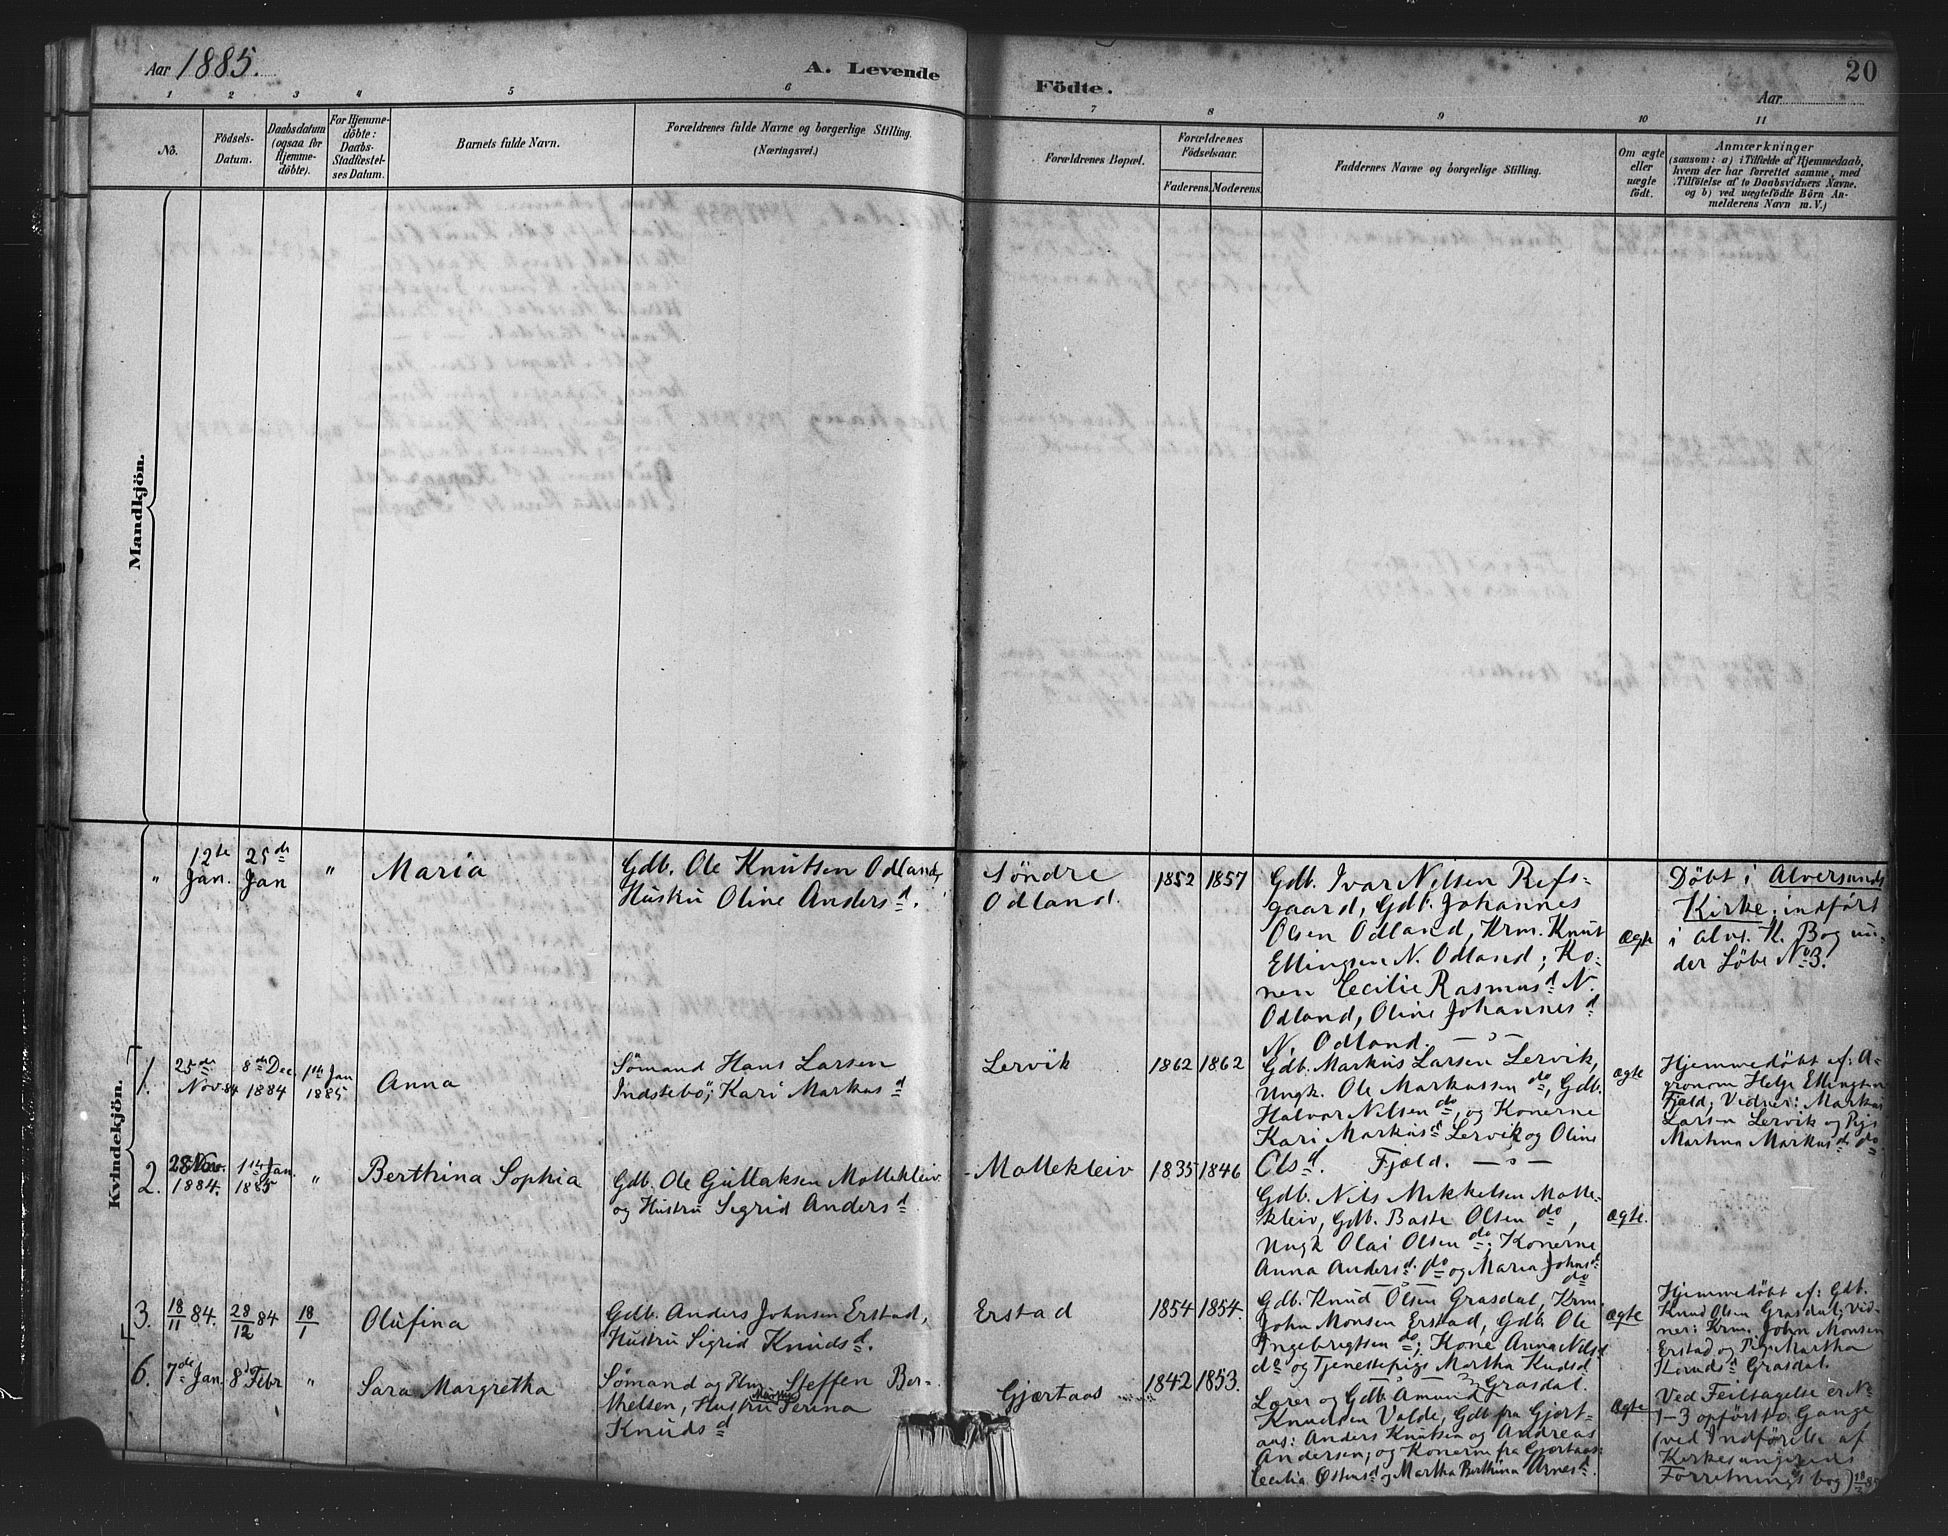 Aar 1885.
A. Levende
Födte.
20
Aar
1
2
3
4
5
6
7
8
9
10
11
No.
Födsels-
Datum.
Daabsdatum
(ogsaa for
Hjemme-
döbte).
For Hjemme-
döbte:
Daabs-
Stadfæstel-
ses Datum.
Barnets fulde Navn.
Forældrenes fulde Navne og borgerlige Stilling.
(Næringsvei.)
Forældrenes Bopæl.
Forældrenes
Födselsaar.
Faderens.
Moderens.
Faddernes Navne og borgerlige Stilling.
Om ægte
eller
uægte
födt.
Anmærkninger
(saasom: a) i Tilfælde af Hjemmedaab,
hvem der har forrettet samme, med
Tilföielse af to Daabsvidners Navne.
og b) ved uægtefödte Börn An-
melderens Navn m. V.)
Mandkjön.
Kvindekjön.
"
12te
Jan.
25de
Jan
"
Maria
Gdb. Ole Knutsen Odland,
Hustru Oline Andersd.
Söndre
Odland.
1852
1857
Gdb. Ivar Nilsen Refs-
gaard, Gdb. Johannes
Olsen Odland, Krm. Knut
Ellingsen N. Odland; Ko-
nen Cecilie Rasmusd N.
Odland, Oline Johannesd
N. Odland.
ægte
Döbt i Alversunds
Kirke; indfört
i Alv. K. Bog un-
der Löbe No 3.
1.
25de
Nov 84
8de Dec.
1884
1ste Jan
1885
Anna
Sömand Hans Larsen
Indstebö; Kari Markusd
Lervik
1862
1862
Gdb. Markus Larsen Lervik,
Ungk. Ole Markussen do, Gdb.
Halvor Nilsen do, og Konerne
Kari Markusd Lervik og Oline
Olsd. Fjeld.
ægte
Hjemmedöbt af: A-
gronom Helje Ellingsen
Fjeld, Vidner: Markus
Larsen Lervik og Pige
Martina Markusd do
2.
28 Nov.
1884.
1ste Jan.
1885
"
Berthina Sophia
Gdb. Ole Gullaksen Mollekleiv
og Hustru Sigrid Andersd
Mollekleiv
1835
1846
Gdb. Nils Mikkelsen Molle-
kleiv, Gdb. Baste Olsen do,
Ungk Olai Olsen do; Konerne
Anna Andersd. do og Maria Johnsd
do
ægte.
3.
18/11 84.
28/12 84
18/1
Olufina
Gdb. Anders Johnsen Erstad,
Hustru Sigrid Knudsd.
Erstad
1854
1854.
Gdb. Knud Olsen Grasdal, Krm.
John Monsen Erstad, Gdb. Ole
Ingebrigtsen do; Kone Anna Nilsd
do og Tjenestepige Martha Knudsd
Grasdal.
ægte
Hjemmedöbt af: Gdb.
Knud Olsen Grasdal; vid-
ner: Krm. John Monsen
Erstad og Pige Martha
Knudsd Grasdal.
6.
7de Jan.
8d Febr
"
Sara Margretha
Sömand og Steffen Ber-
Martha
thelsen, Hustru Serina
Knudsd
Gjærtaas
1842
1853.
Lærer og Gdb. Amund
Knudsen Valde, Gdb fra Gjert-
aas: Anders Knutsen og Andreas
Andersen; og Konerne fra Gjertaas:
Cecilia Östensd og Martha Berthina Arnesd.
ægte
Ved Feiltagelse er No
1-3 opfört to Gange
(ved Indförelse af
Kirkesangerens
Forretningsbog)